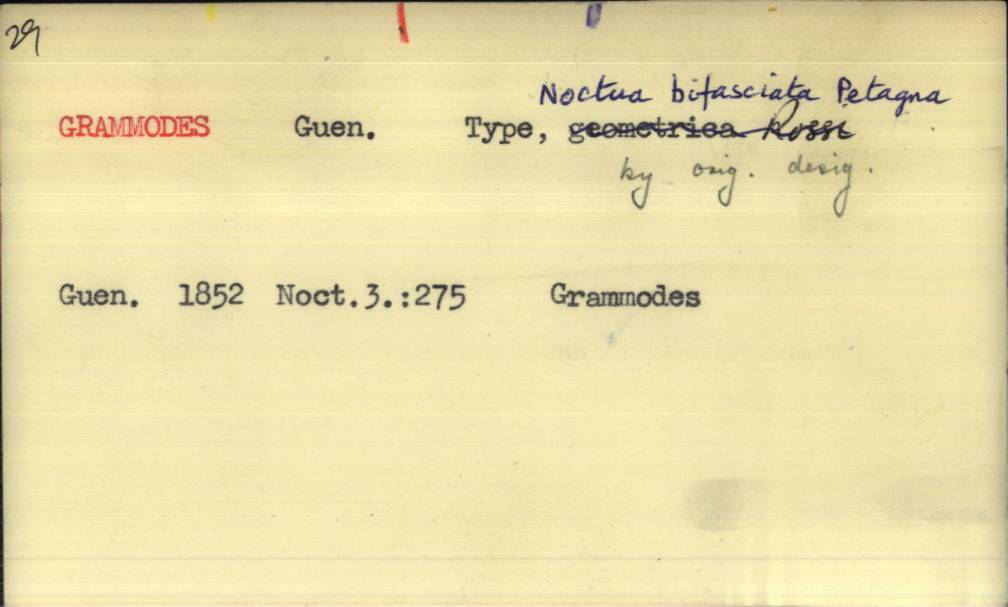 29
Noctua bifasciata Petagna
GRAMMODES Guen. Type, geometrica Rossi
by orig. desig.
Guen. 1852 Noct.3.:275 Grammodes